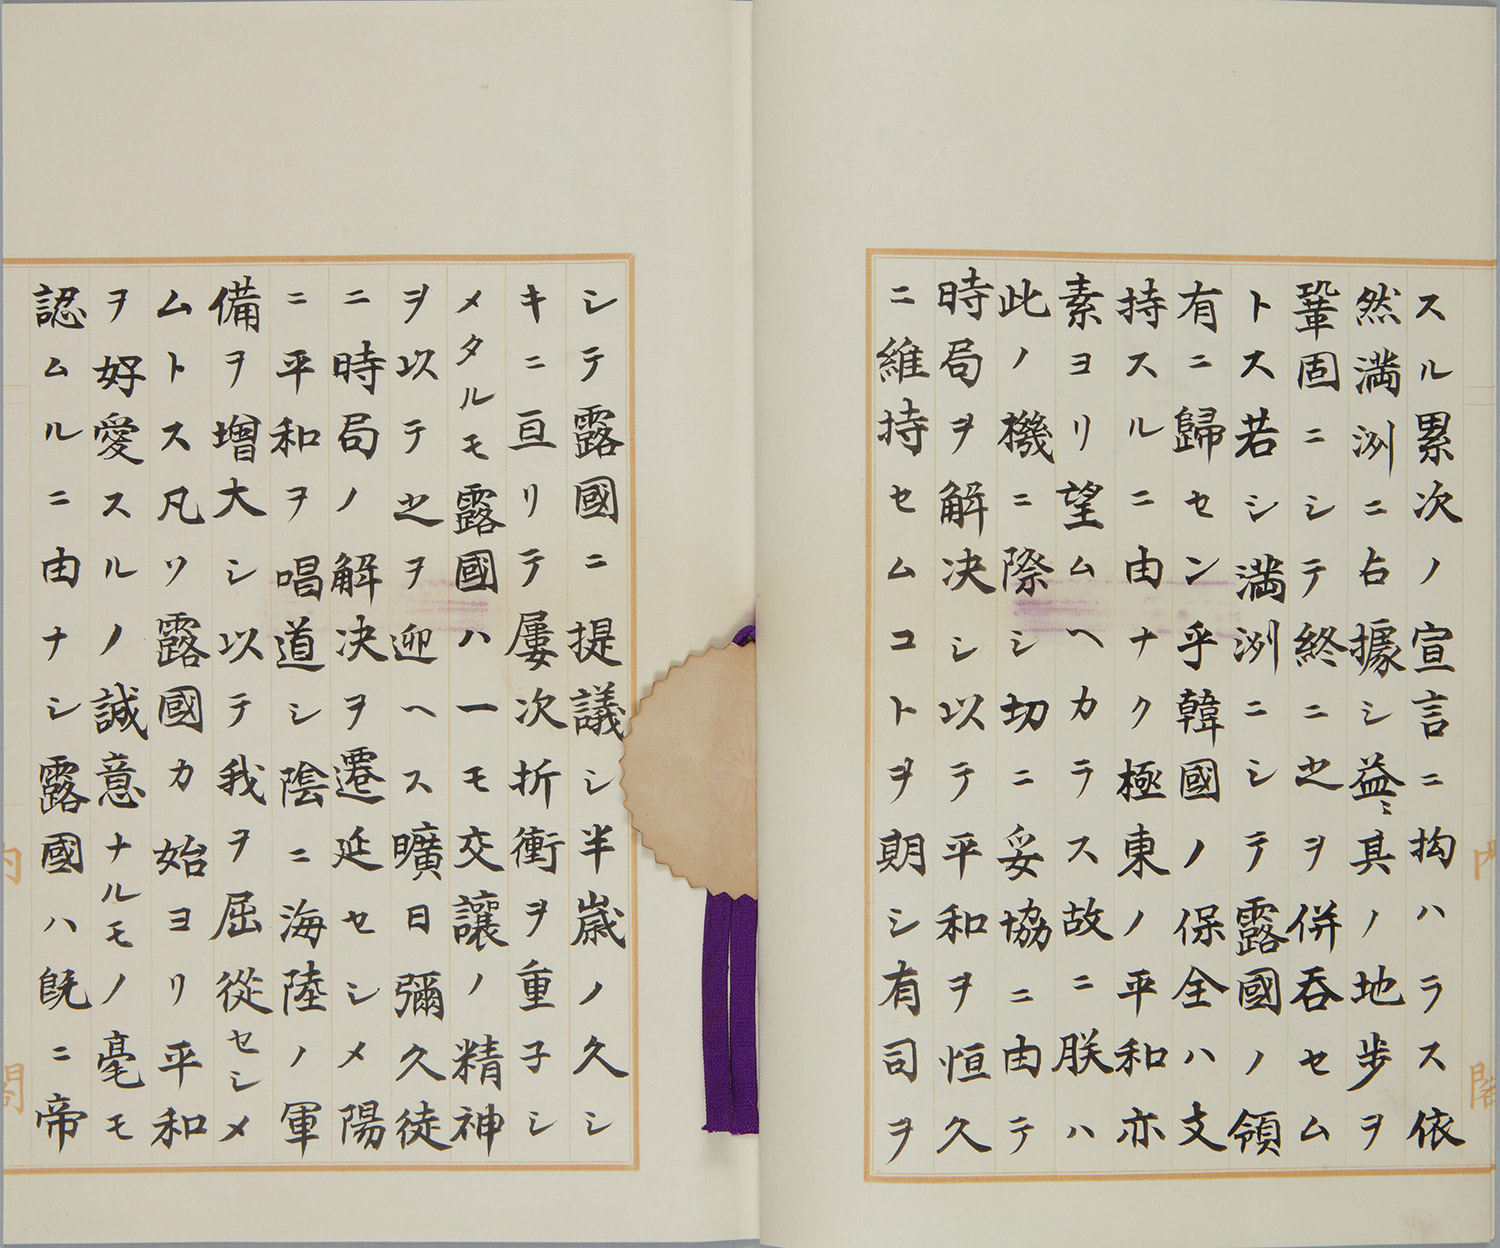 スル累次ノ宣言ニ拘ハラス依
然満洲ニ占據シ益〻其ノ地歩ヲ
鞏固ニシテ終ニ之ヲ併呑セム
トス若シ満洲ニシテ露國ノ領
有ニ歸センカ乎韓國ノ保全ハ支
持スルニ由ナク極東ノ平和亦
素ヨリ望ムヘカラス故ニ朕ハ
此ノ機ニ際シ切ニ妥協ニ由テ
時局ヲ解决シ以テ平和ヲ恒久
ニ維持セムコトヲ期シ有司ヲ
シテ露國ニ提議シ半歳ノ久シ
キニ亘リテ屢次折衝ヲ重子シ
メタルモ露國ハ一モ交讓ノ精神
ヲ以テ之ヲ迎ヘス曠日彌久徒
ニ時局ノ解决ヲ遷延セシメ陽
ニ平和ヲ唱道シ陰ニ海陸ノ軍
備ヲ増大シ以テ我ヲ屈從セシメ
ムトス凡ソ露國カ始ヨリ平和
ヲ好愛スルノ誠意ナルモノ毫モ
認ムルニ由ナシ露國ハ既ニ帝
内閣
内閣